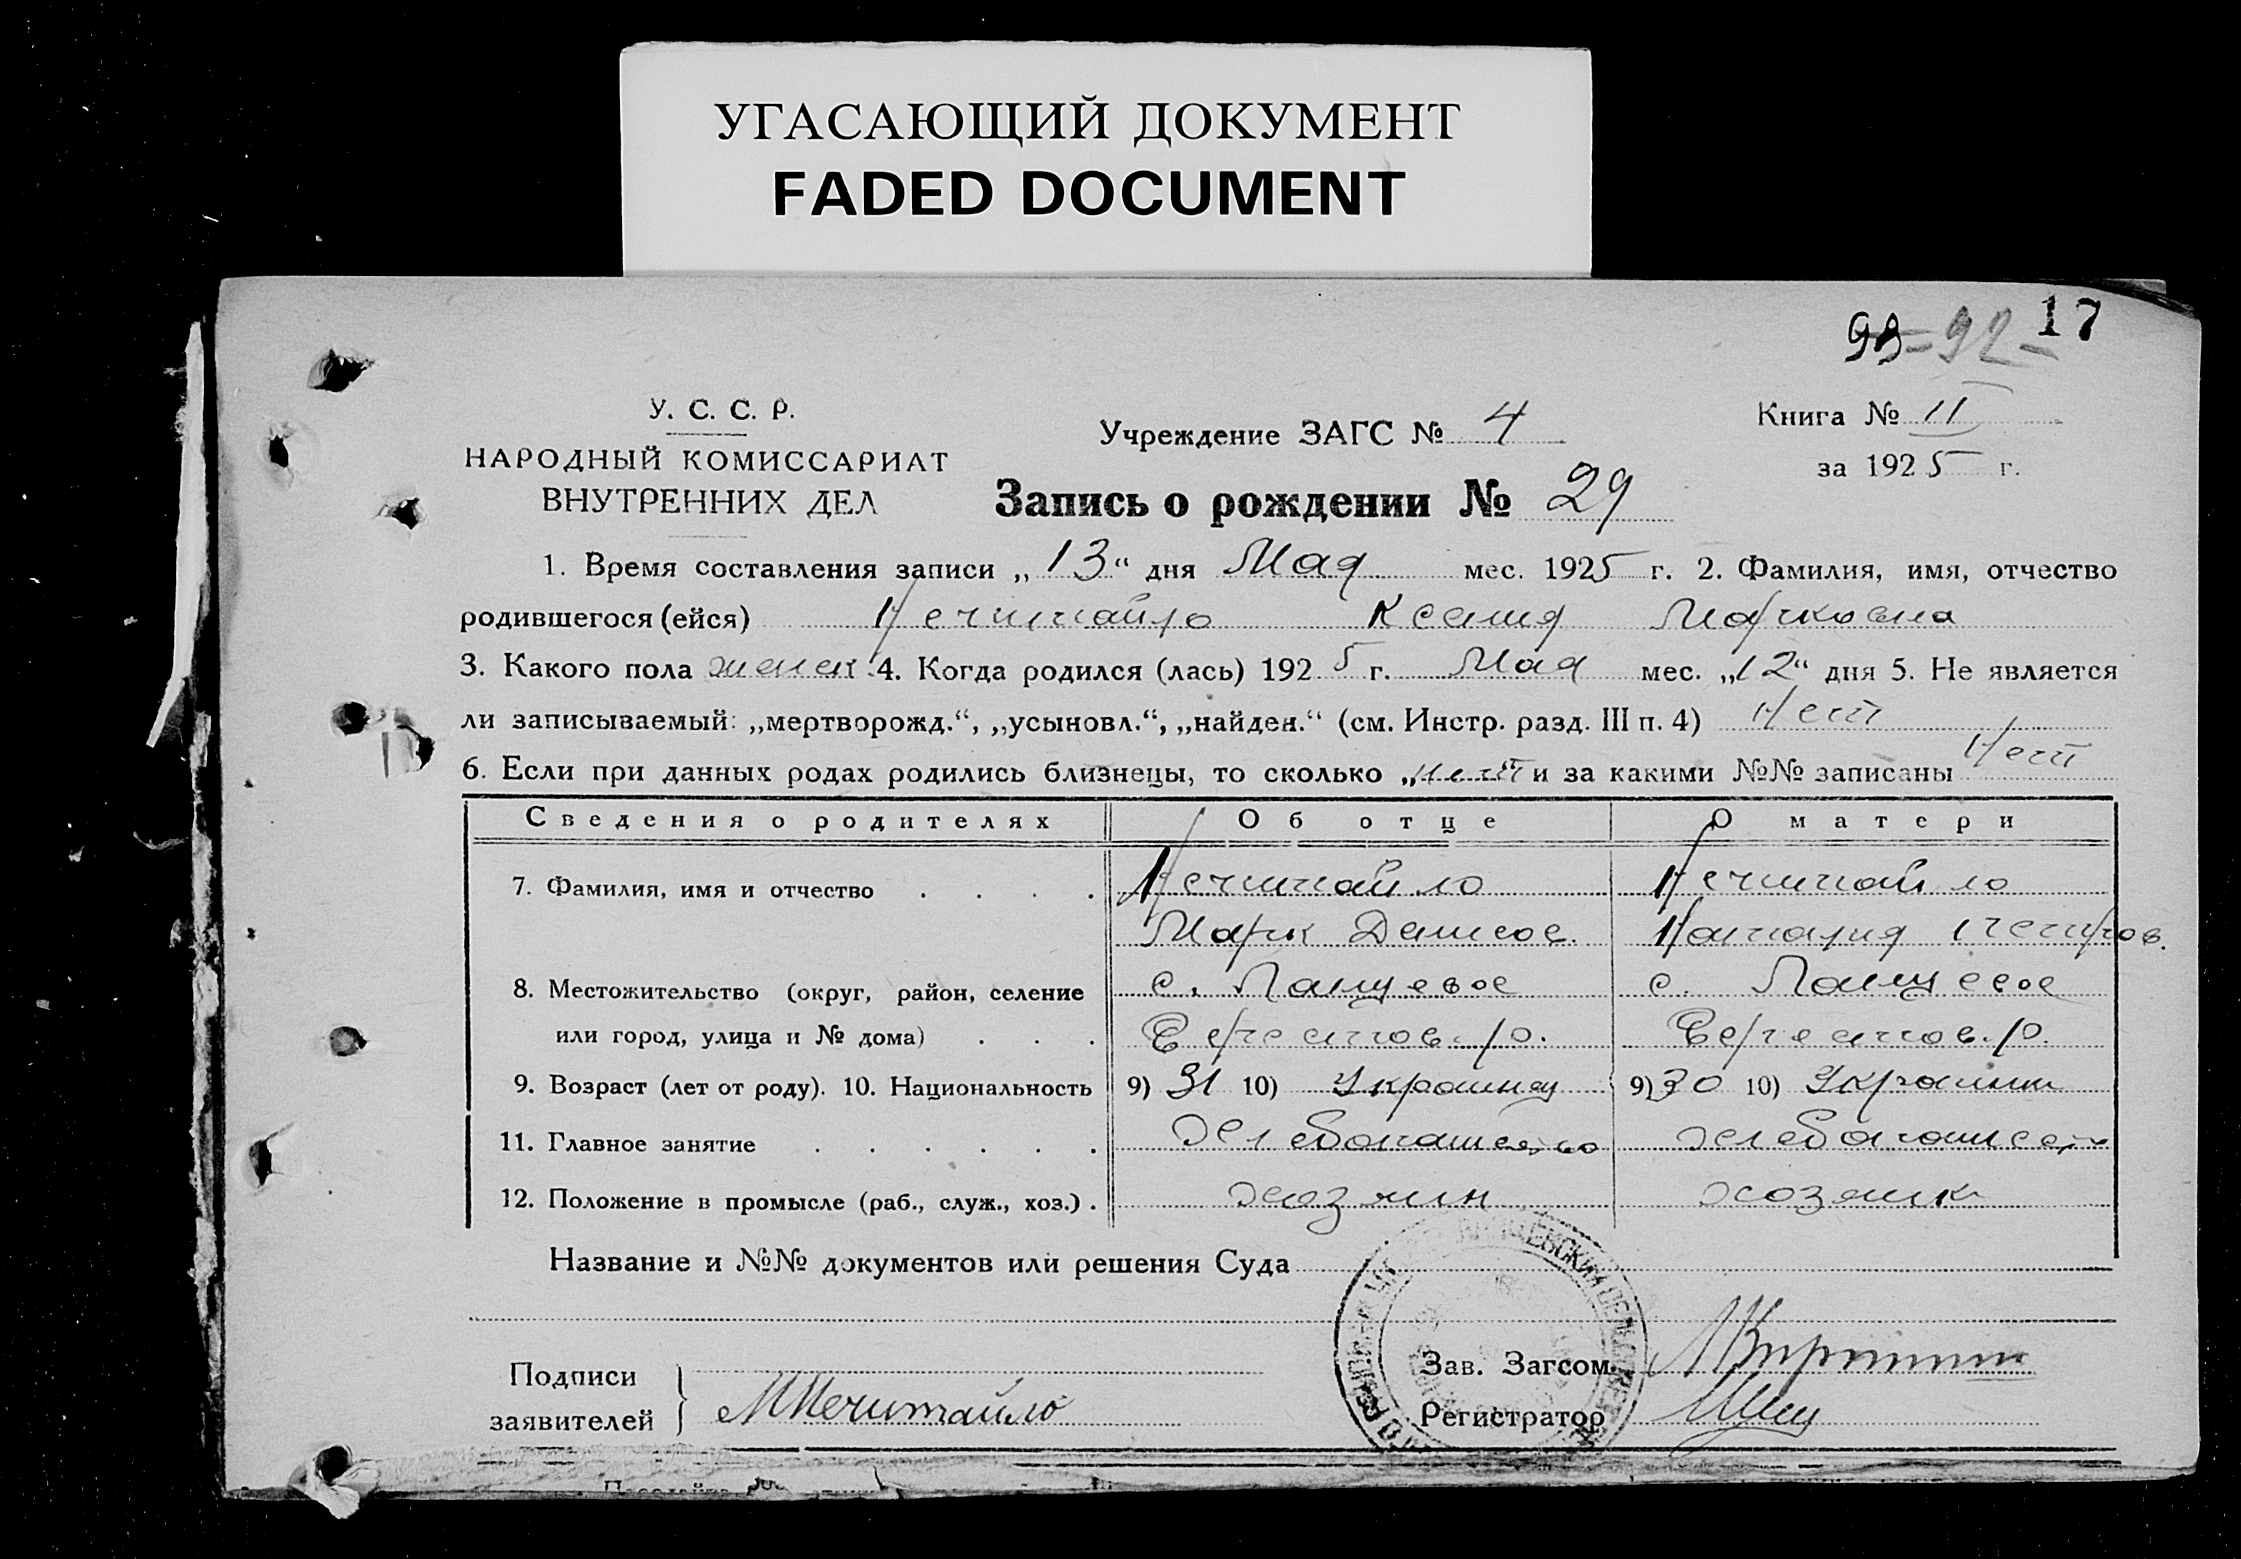 УГАСАЮЩИЙ ДОКУМЕНТ
FADED DOCUMENT
17
93-92-
У. С. С. Р.
НАРОДНЫЙ КОМИССАРИАТ
ВНУТРЕННИХ ДЕЛ
Учреждение ЗАГС № 4
Книга № II
за 1925 г.
Запись о рождении № 29
1. Время составления записи „13“ дня Мая мес. 1925 г. 2. Фамилия, имя, отчество
родившегося (ейся) Нечитайло Ксения Марковна
3. Какого пола женск 4. Когда родился (лась) 1925 г. Мая мес. „12“ дня 5. Не является
ли записываемый: „мертворожд.“, „усыновл.“, „найден.“ (см. Инстр. разд. III п. 4) Нет
6. Если при данных родах родились близнецы, то сколько „нет и за какими №№ записаны Нет
Сведения о родителях Об отце О матери
7. Фамилия, имя и отчество . . . . Нечитайло Нечитайло
Марк Денисов. Наталия
8. Местожительство (округ, район, селение с. Ланцевое с. Ланцевое
или город, улица и № дома) . . . Берестов. р. Берестов. р.
9. Возраст (лет от роду). 10. Национальность 9) 31 10) Украинец 9) 30 10) Украинк
11. Главное занятие . . . . . . Хлебопашество хлебопашест
12. Положение в промысле (раб., служ., хоз.) . хозяин хозяйк
Название и №№ документов или решения Суда
Подписи
заявителей
МНечитайло
Зав. Загсом
Регистратор